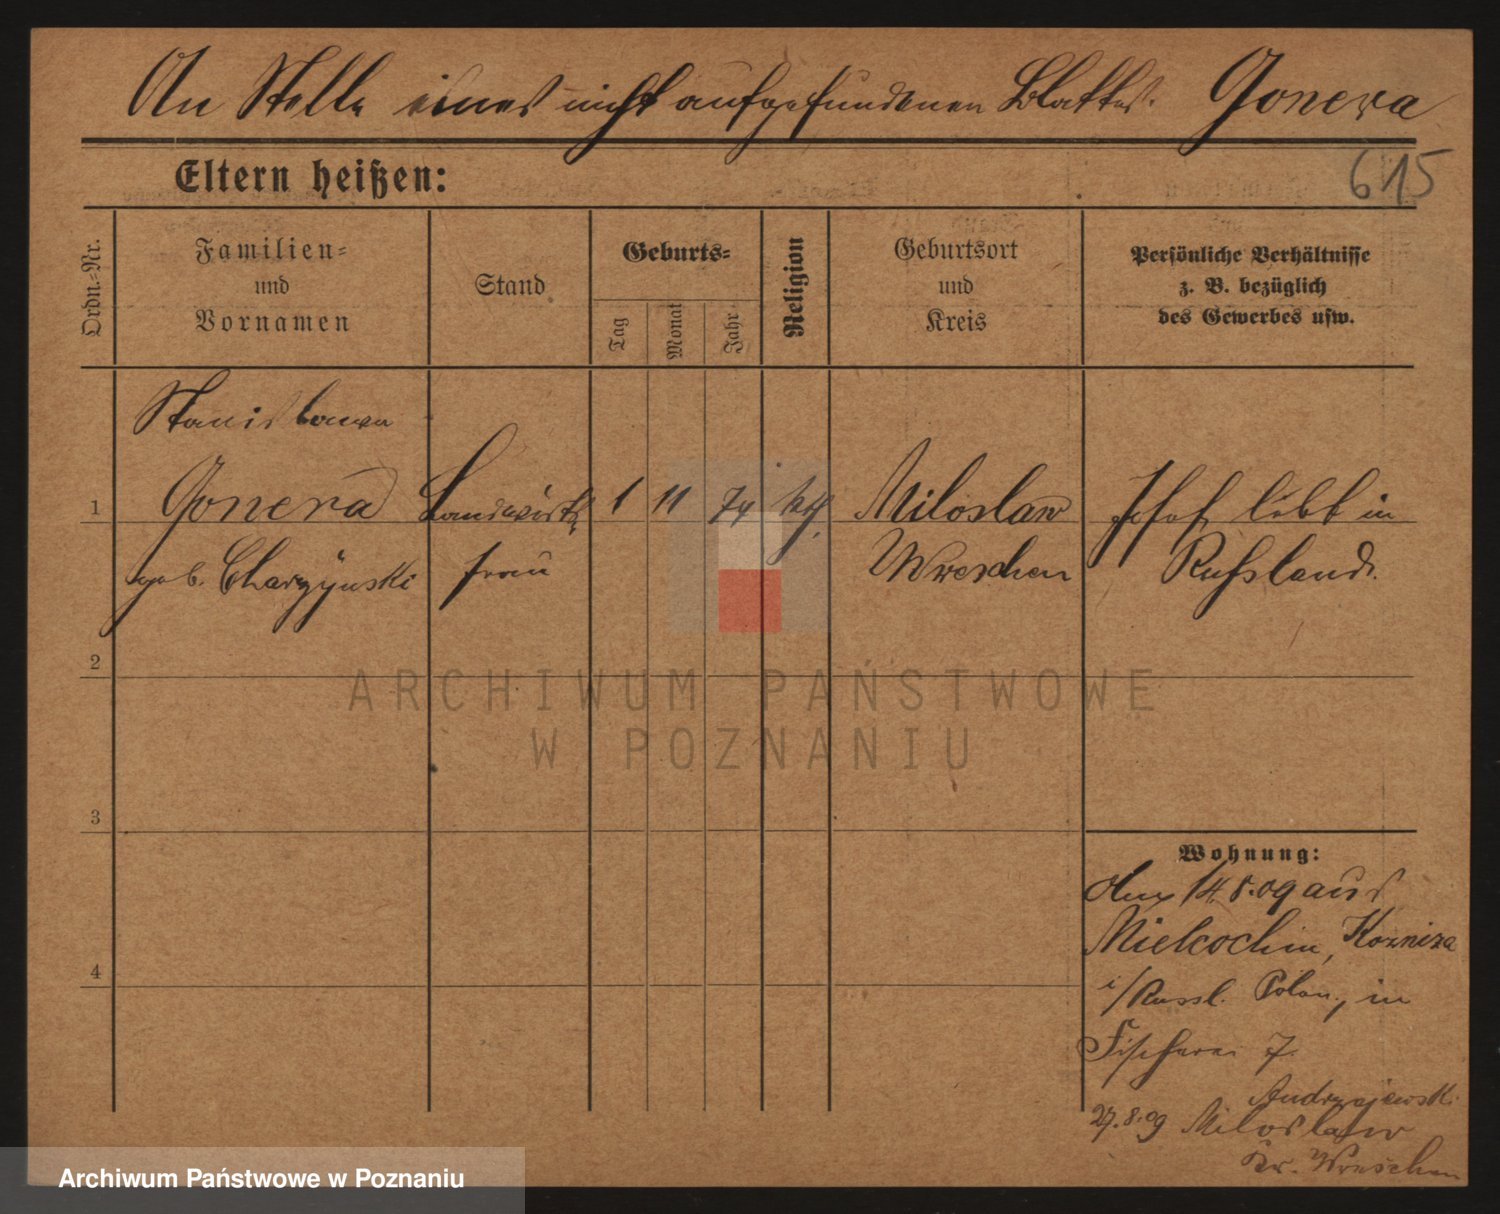 An Stelle eines nicht aufgefundenen Blattes. Gonera
615
Eltern heißen:
Ordn.-Nr.
Familien-
und
Vornamen
Stand
Geburts-
Tag
Monat
Jahr
Religion
Geburtsort
und
Kreis
Persönliche Verhältnisse
z. B. bezüglich
des Gewerbes usw.
Stanislawa
1 Gonera Landwirth 1 11 74 kth. Miloslaw Josef lebt in
geb. Charzynski frau Wreschen Russland.
2
ARCHIWUM PAŃSTWOWE
W POZNANIU
3
Wohnung:
14.8.09 aus
Mielcochin,
4
i/Russl. Polen, in
Fischerei 7.
Andrzejewski
27.8.09 Miloslaw
Kr. Wreschen
Archiwum Państwowe w Poznaniu